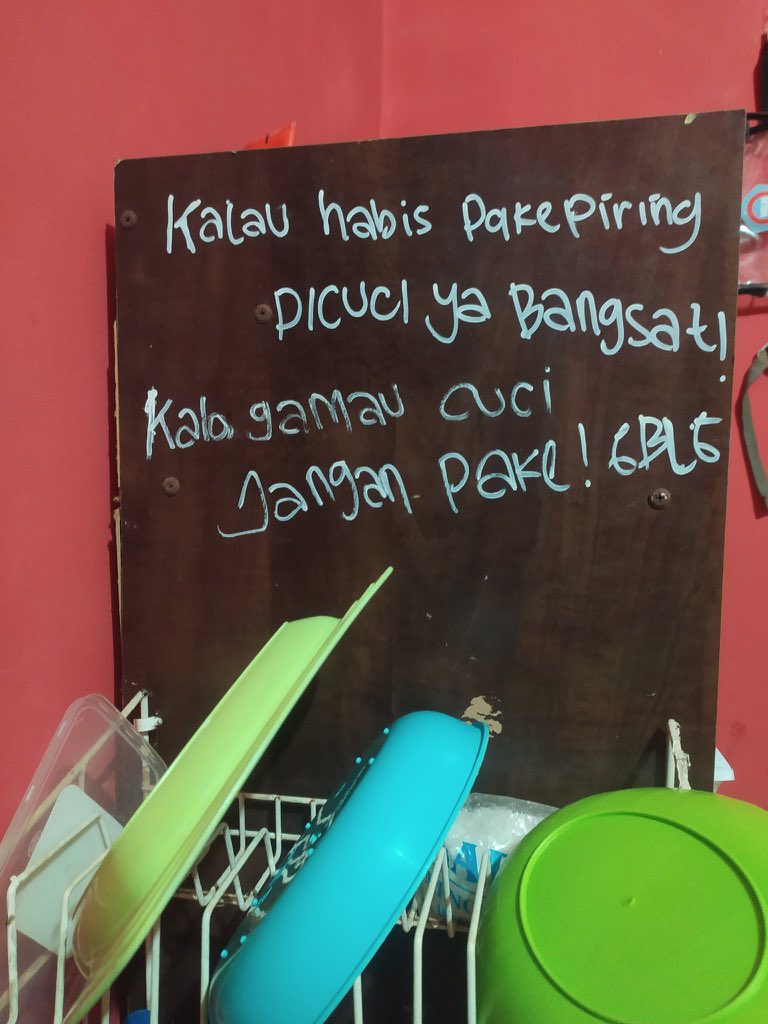 Kalau habis pake piring
DICUCI ya Bangsat!
Kalo gamau cuci
Jangan pake! GBLG